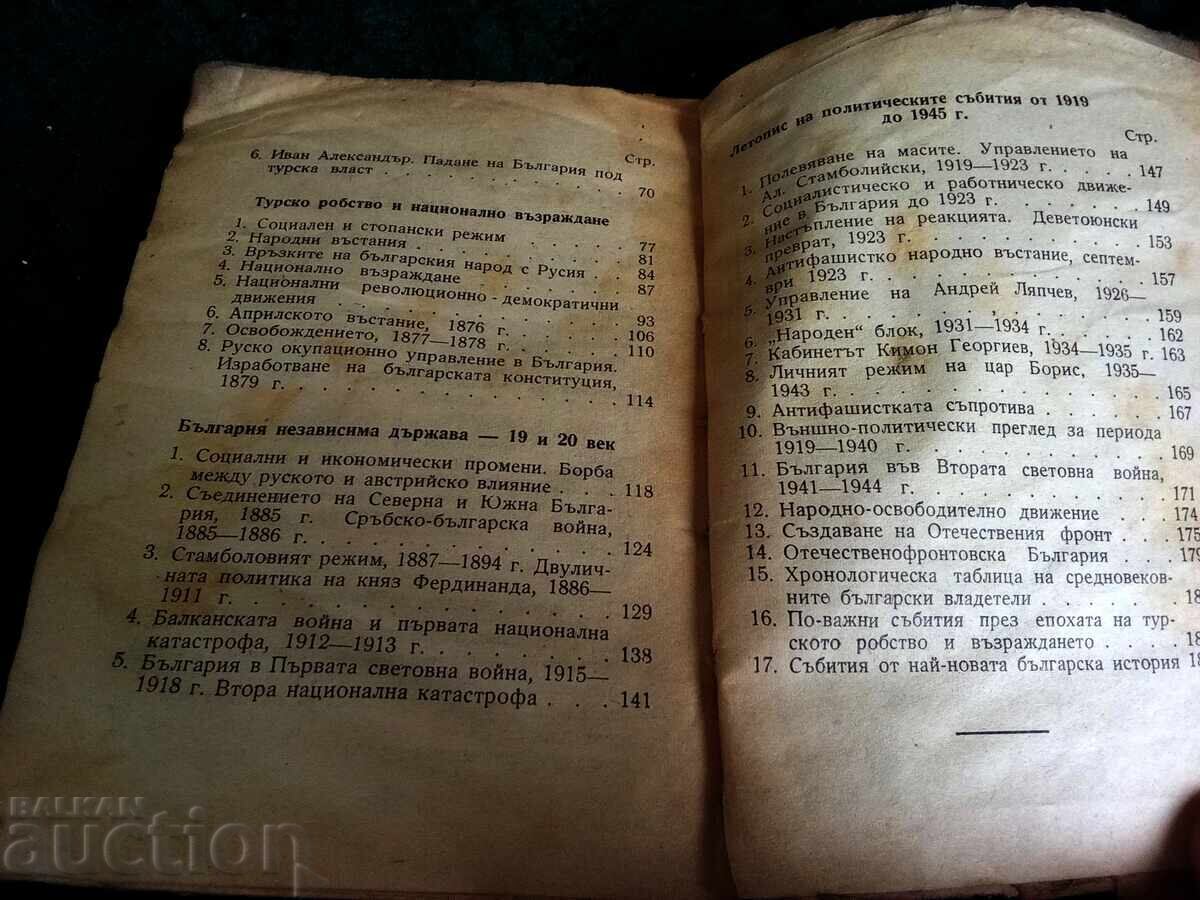 Стр.
6. Иван Александър. Падане на България под
турска власт . . . . . . . . . . 70
Турско робство и национално възраждане
1. Социален и стопански режим . . . . . 77
2. Народни въстания . . . . . . . . . 81
3. Връзките на българския народ с Русия . . 84
4. Национално възраждане . . . . . . . 87
5. Национални революционно-демократични
движения . . . . . . . . . . . 93
6. Априлското въстание, 1876 г. . . . . . 106
7. Освобождението, 1877—1878 г. . . . . . 110
8. Руско окупационно управление в България.
Изработване на българската конституция,
1879 г. . . . . . . . . . . . . 114
България независима държава — 19 и 20 век
1. Социални и икономически промени. Борба
между руското и австрийско влияние . . . 118
2. Съединението на Северна и Южна Бълга-
рия, 1885 г. Сръбско-българска война,
1885—1886 г. . . . . . . . . . . 124
3. Стамболовият режим, 1887—1894 г. Двулич-
ната политика на княз Фердинанда, 1886—
1911 г. . . . . . . . . . . . . 129
4. Балканската война и първата национална
катастрофа, 1912—1913 г. . . . . . . 138
5. България в Първата световна война, 1915—
1918 г. Втора национална катастрофа . . . 141
Летопис на политическите събития от 1919
до 1945 г.
Стр.
1. Полевяване на масите. Управлението на
Ал. Стамболийски, 1919—1923 г. . . . . 147
2. Социалистическо и работническо движе-
ние в България до 1923 г. . . . . . . 149
3. Настъпление на реакцията. Деветоюнски
преврат, 1923 г. . . . . . . . . . 153
4. Антифашистко народно въстание, септем-
ври 1923 г. . . . . . . . . . . . 157
5. Управление на Андрей Ляпчев, 1926—
1931 г. . . . . . . . . . . . . 159
6. „Народен“ блок, 1931—1934 г. . . . . . 162
7. Кабинетът Кимон Георгиев, 1934—1935 г. 163
8. Личният режим на цар Борис, 1935—
1943 г. . . . . . . . . . . . . 165
9. Антифашистката съпротива . . . . . . 167
10. Външно-политически преглед за периода
1919—1940 г. . . . . . . . . . . 169
11. България във Втората световна война,
1941—1944 г. . . . . . . . . . . 171
12. Народно-освободително движение . . . 174
13. Създаване на Отечествения фронт . . . 175
14. Отечественофронтовска България . . . 179
15. Хронологическа таблица на средновеков-
ните български владетели . . . . . .
16. По-важни събития през епохата на тур-
ското робство и възраждането . . . .
17. Събития от най-новата българска история
BALKAN
auction